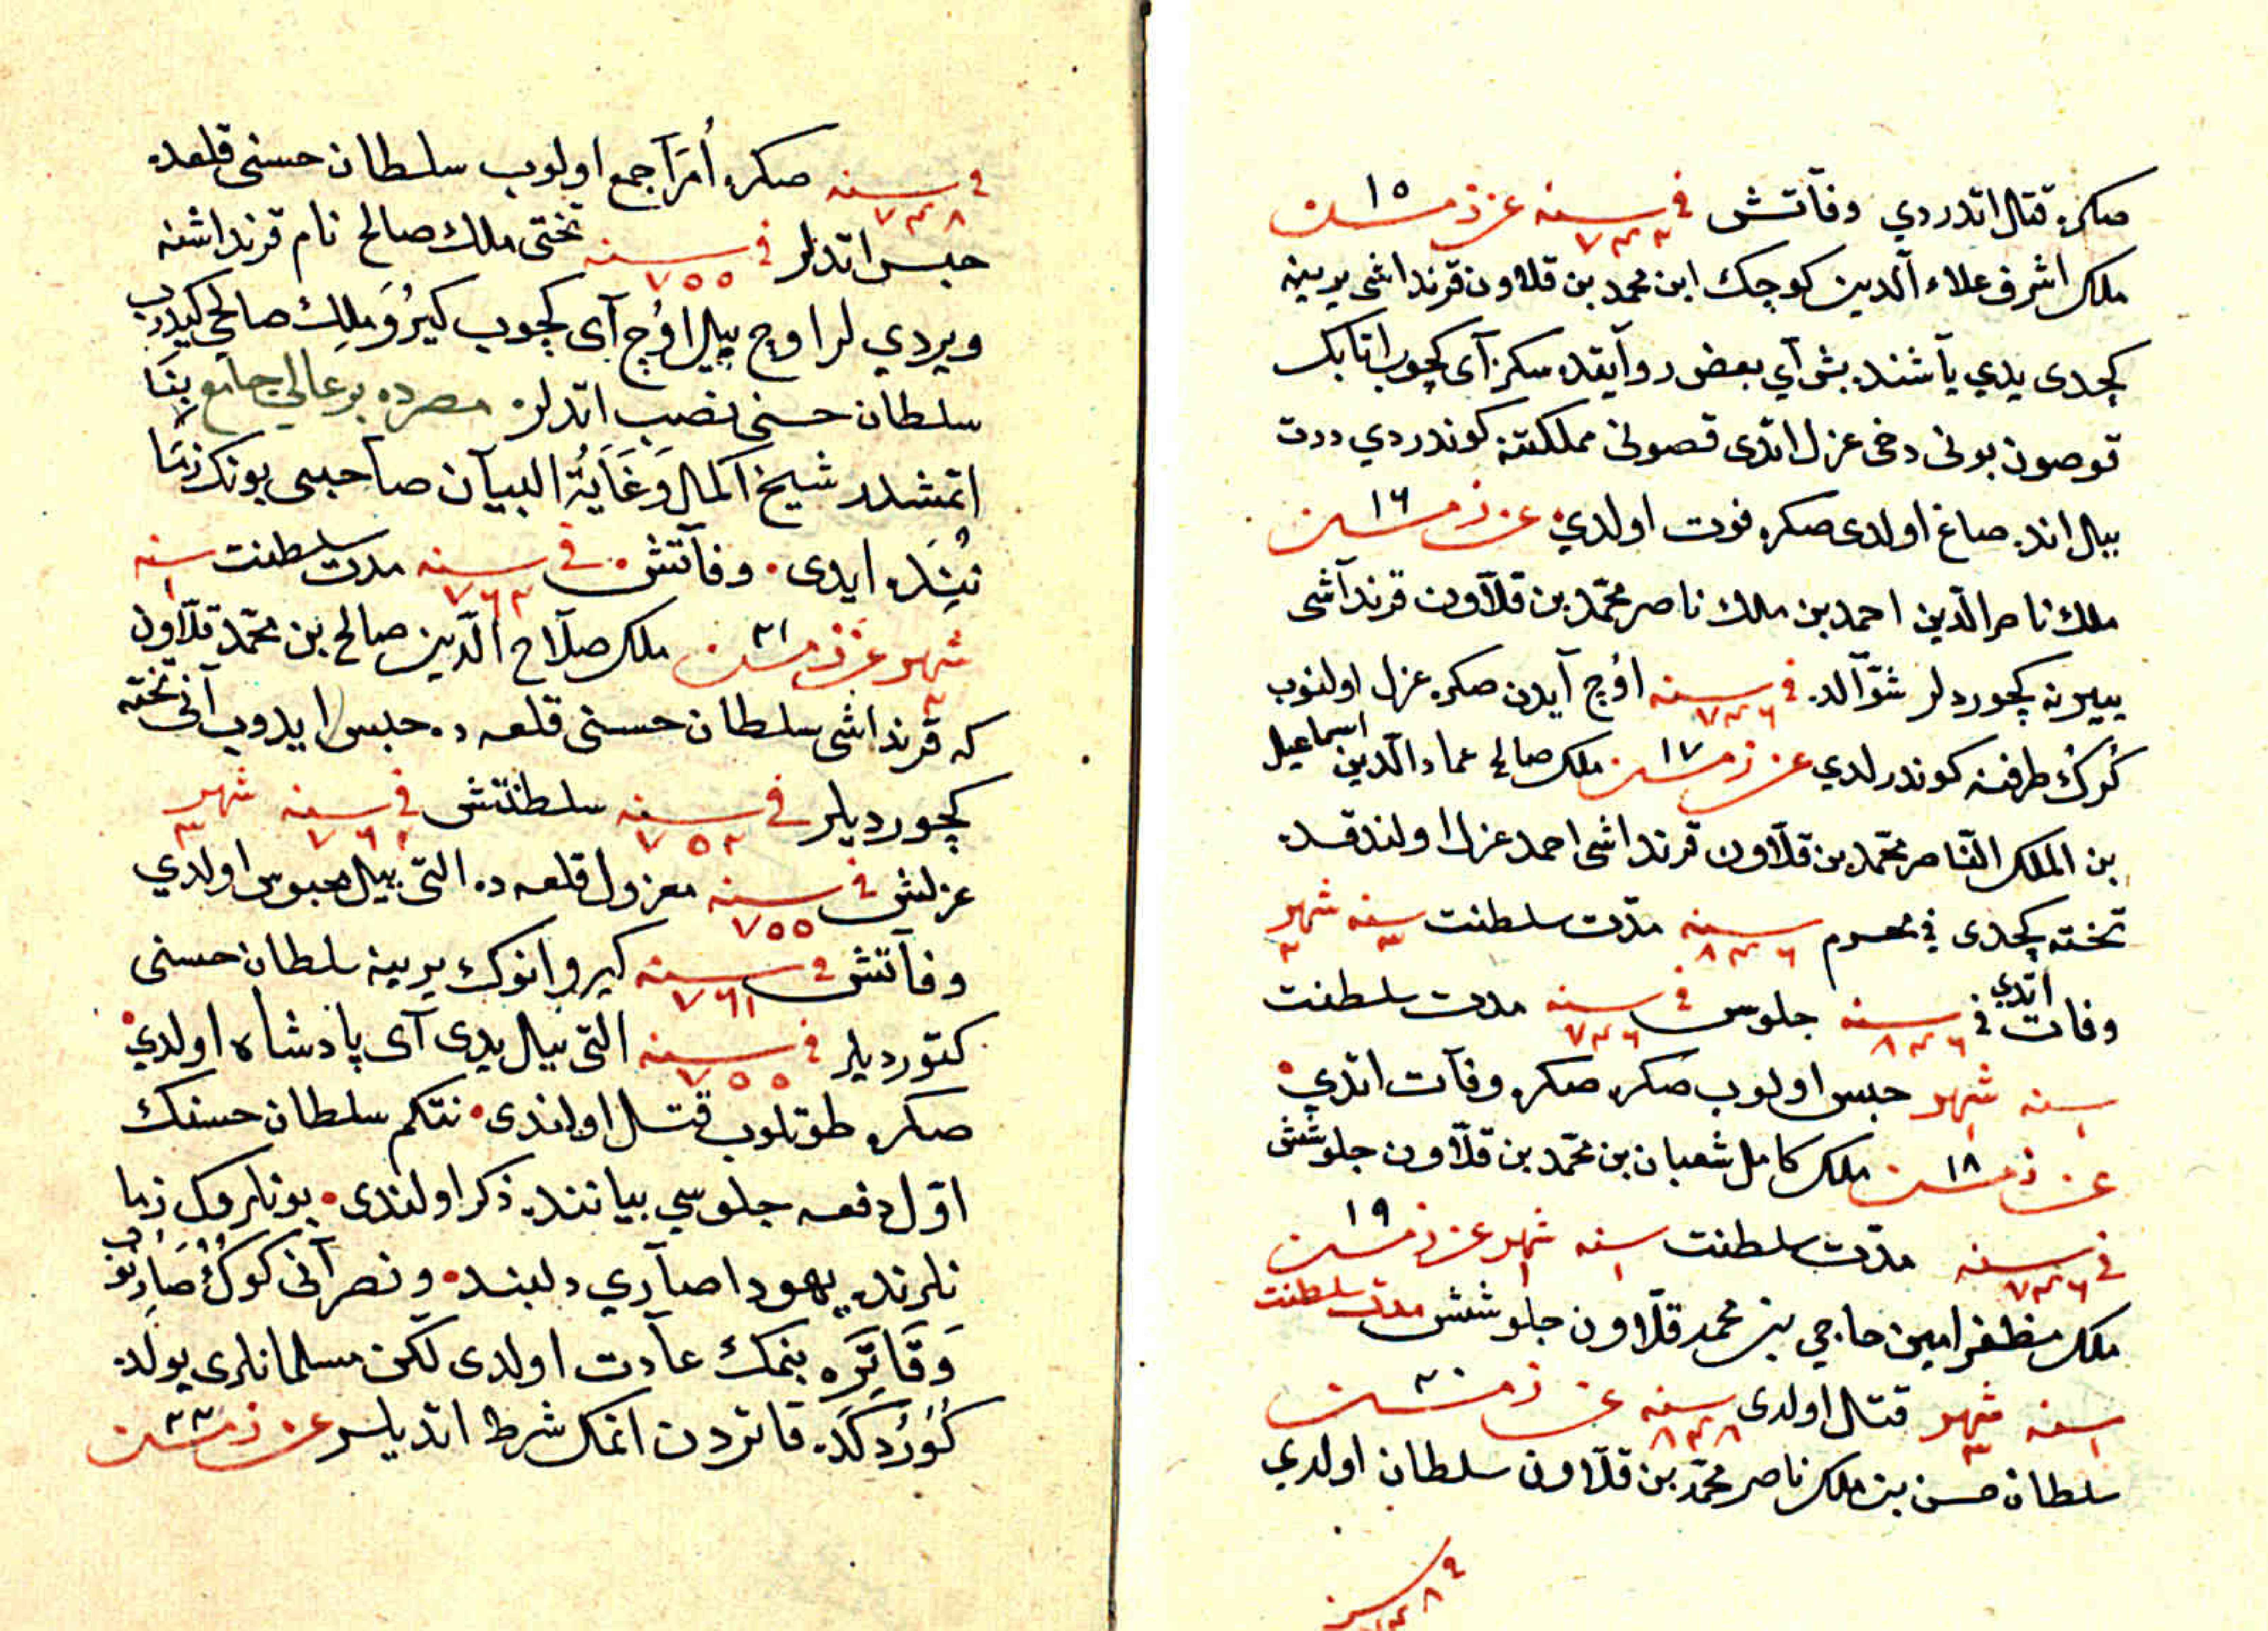 صكره قتال اتدردي وفآتش في سنه ٧٤٢ عزيز مسند ١٥
ملك اشرف علاء الدين كوچك ابن محمد بن قلاون قرنداشى يرينه
كچدى يدي ياشنده بش آي بعض روايتده سكز آى كچوب اتابك
قوصون بونى دخى عزل اتدى قصونى مملكتنه كوندردي دورت
ييل انده صاغ اولدى صكره فوت اولدي ١٦
ملك ناصر الدين احمد بن ملك ناصر محمد بن قلاون قرنداشى
ييرينه كچوردلر شوالده في سنه ٧٤٦ اوچ آيدن صكره عزل اولنوب
كرك طرفنه كوندرلدي ١٧ ملك صالح عماد الدين اسماعيل
بن الملك الناصر محمد بن قلاون قرنداشى احمد عزل اولندقده
تخته كچدى في محرم سنه ٨٤٦ مدت سلطنت سنه ٣ شهر ٢
وفات اتدي في سنه ٨٤٦ جلوس في سنه ٧٤٦ مدت سلطنت
سنه ١ شهر ١ حبس اولوب صكره صكره وفات اتدي
١٨ ملك كامل شعبان بن محمد بن قلاون جلوسش
في سنه ٧٤٦ مدت سلطنت سنه ١ شهر ١ ١٩
ملك مظفر امين حاجي بن محمد قلاون جلوسش مدت سلطنت
سنه ١ شهر ٣ قتال اولدى سنه ٨٤٨ ٢٠
سلطان حسن بن ملك ناصر محمد بن قلاون سلطان اولدي
في سنه ٧٤٨ صكره أمرا جمع اولوب سلطان حسنى قلعده
حبس اتدلر في سنه ٧٥٥ تختى ملك صالح نام قرنداشنه
ويردي لر اوچ ييل اوچ آى كچوب كيرو ملك صالحي كيدرب
سلطان حسنى نصب اتدلر مصرده بر عالي جامع بنا
اتمشدر شيخ اكمال وغاية البيان صاحبى بونك زما
ننده ايدى وفاتش في سنه ٧٦٢ مدت سلطنت سنه ١
شهر ٢ ٢١ ملك صلاح الدين صالح بن محمد قلاون
كه قرنداشى سلطان حسنى قلعه ده حبس ايدوب آنى تخته
كچورديلر في سنه ٧٥٢ سلطنتش في سنه ٧٦٢ شهر ٣
عزلش في سنه ٧٥٥ معزول قلعه ده التى ييل محبوس اولدي
وفاتش في سنه ٧٦١ كيرو انوك يرينه سلطان حسنى
كتورديلر في سنه ٧٥٥ التى ييل يدى آى پادشاه اولدي
صكره طوتلوب قتل اولندى نتكم سلطان حسنك
اول دفعه جلوسي بياننده ذكر اولندى بونلروك زما
نلرنده يهودا صآري دلبند ونصرآنى كوك صارنوب
وقاتره بنمك عادت اولدى لكن مسلمانلرى يولده
كوردكده قاتردن انمك شرط اتديلر ٢٢